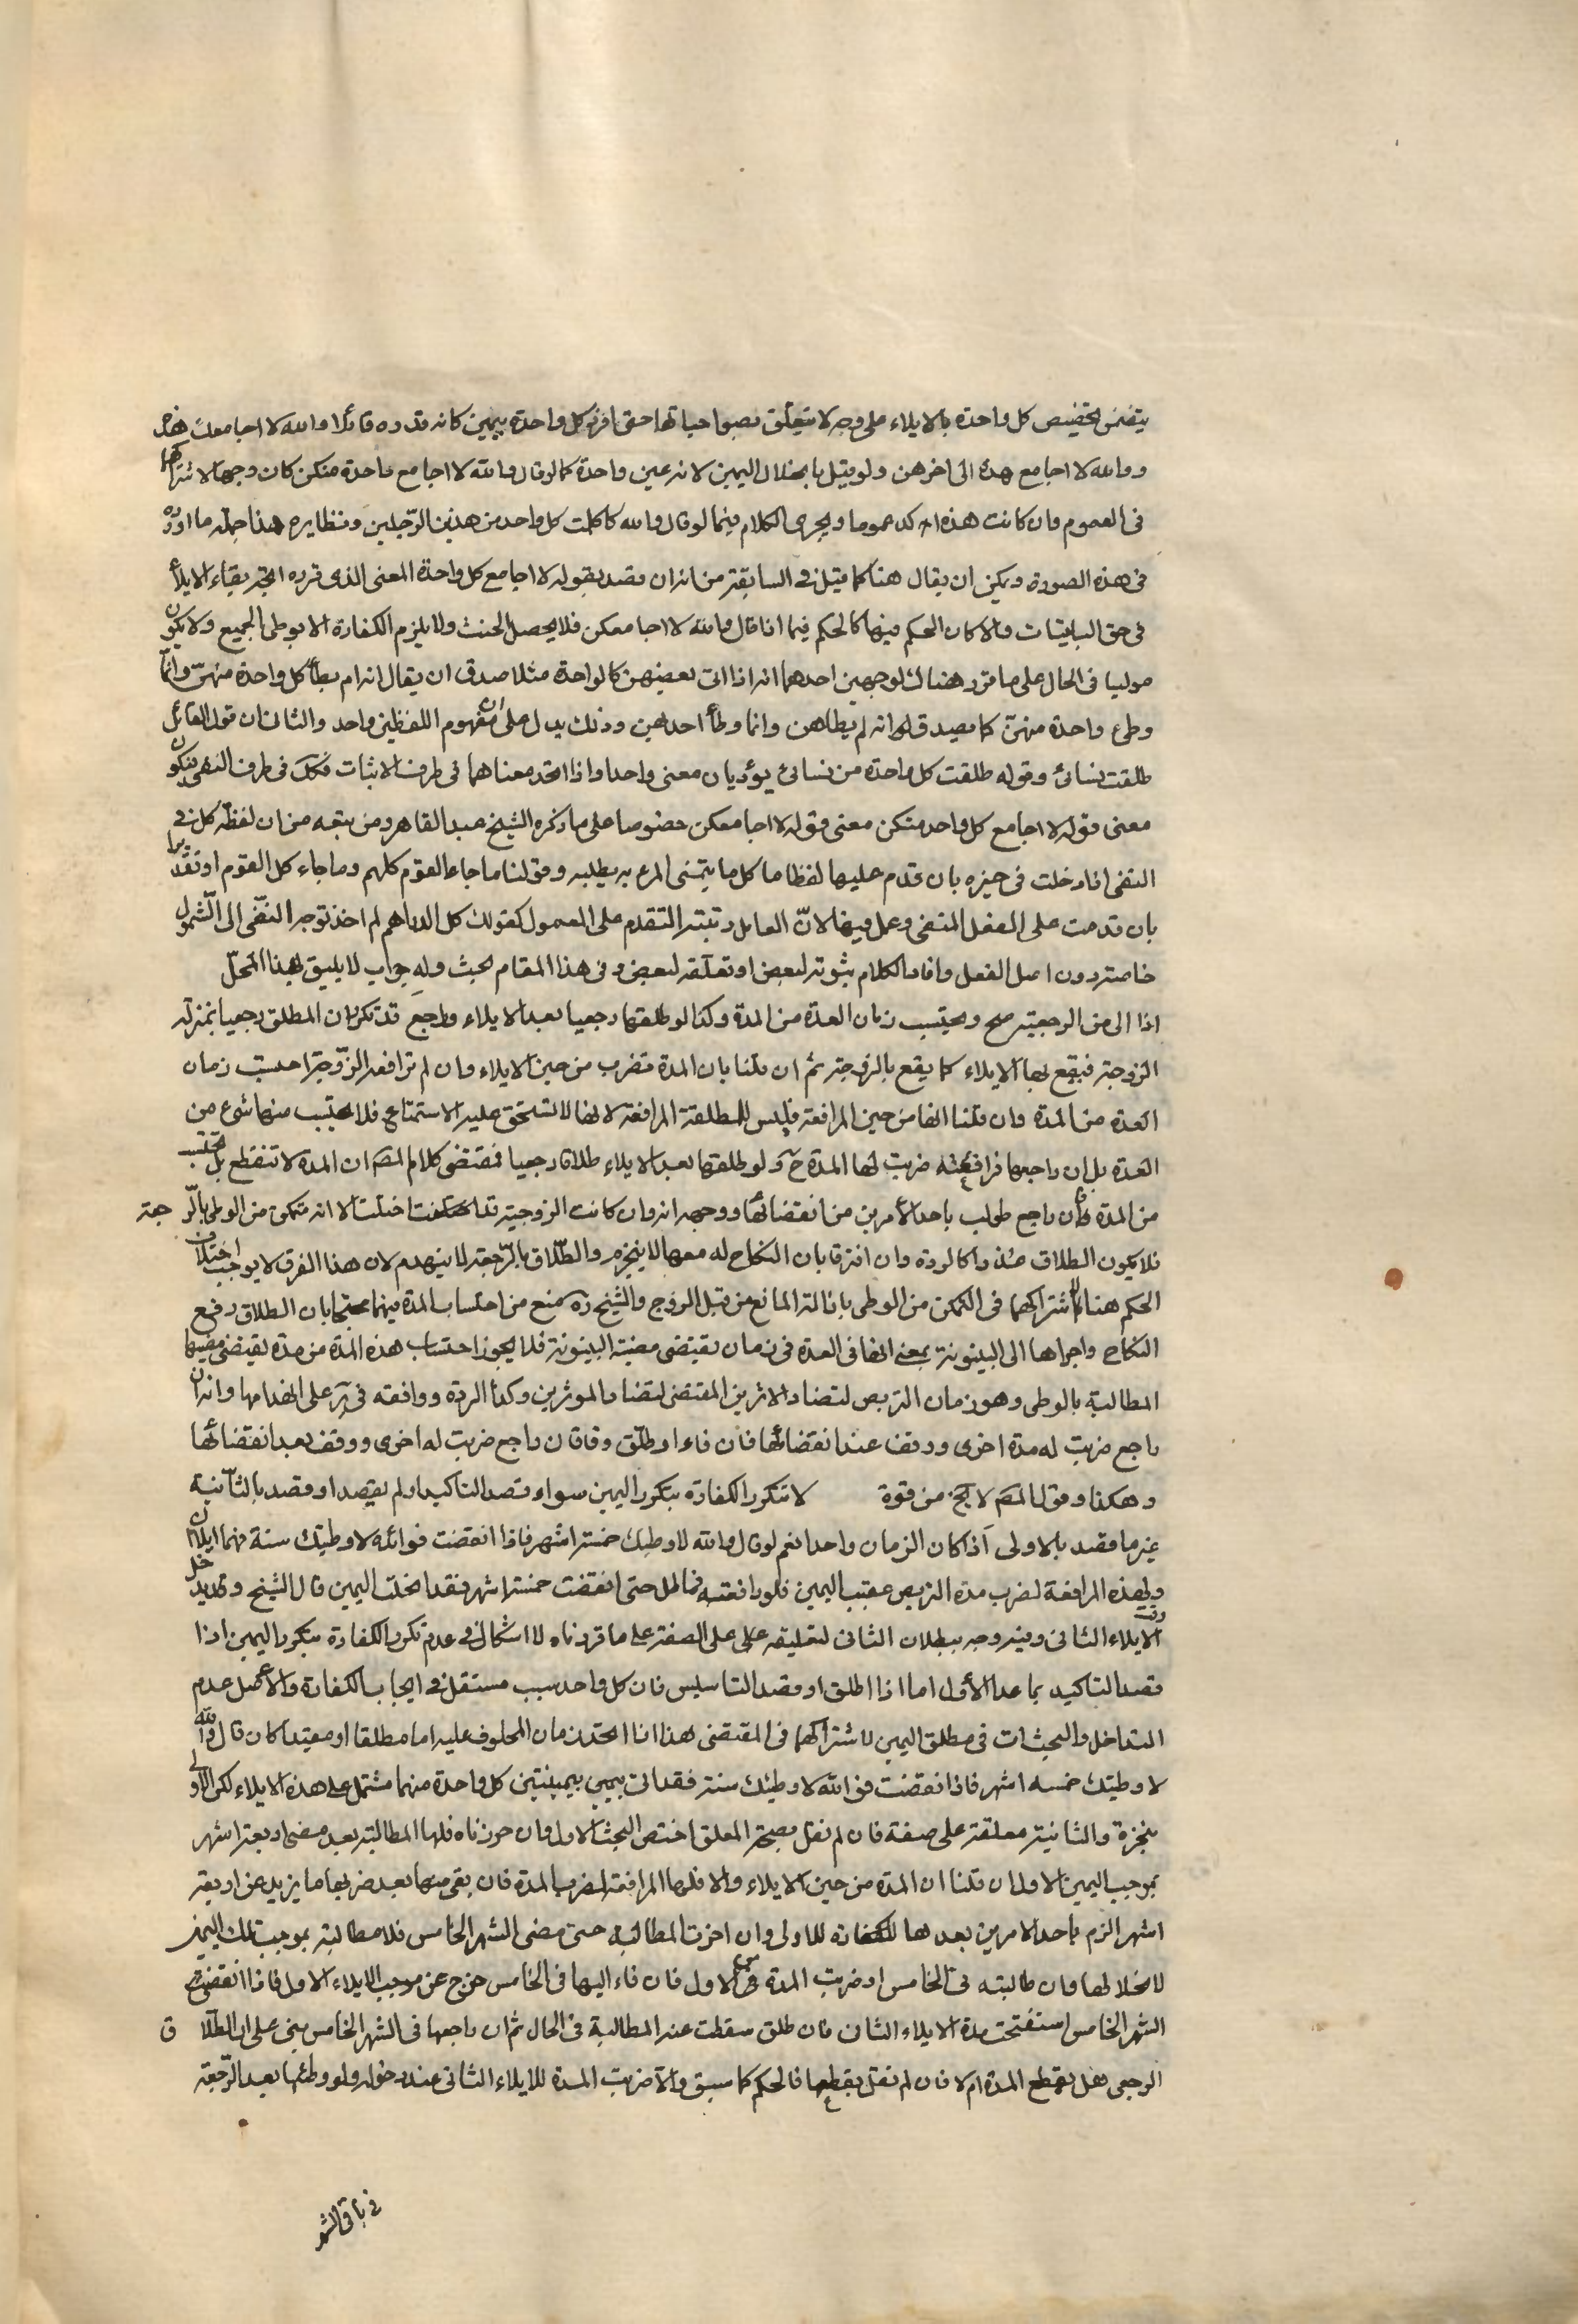 يتضمن تخصيص كل واحدة بالايلاء على وجه لا يتعلق بصواحباتها حتى افرد كل واحدة بيمين كانه قد ره قائلا والله لا اجامعك هذه
ووالله لا اجامع هذه الى اخرهن ولو قيل بانحلال اليمين لانه عين واحدة كما لو قال والله لا اجامع واحدة منكن كان وجها لاشتراكهما
فى العموم وان كانت هذه اكد عموما ويجرى الكلام فيما لو قال والله لا كلمت كل واحد من هذين الرجلين ونظايره هذا جملة ما اورده
فى هذه الصورة ويمكن ان يقال هنا كما قيل فى السابقة من انه ان قصد بقوله لا اجامع كل واحدة المعنى الذى قرره اتجه بقاء الايلاء
فى حق الباقيات والا كان الحكم فيها كالحكم فيما اذا قال والله لا اجامعكن فلا يحصل الحنث ولا يلزم الكفارة الا بوطى الجميع ولا يكون
موليا فى الحال على ما قرر هناك لوجهين احدهما انه اذا اتى بعضهن كالواحدة مثلا صدق ان يقال انه لم يطأ كل واحدة منهن وانما
وطئ واحدة منهن كما يصدق قوله انه لم يطاهن وانما وطأ احديهن وذلك يدل على ان مفهوم اللفظين واحد والثانى ان قول القائل
طلقت نسائى وقوله طلقت كل واحدة من نسائى يؤديان معنى واحدا واذا اتحد معناهما فى طرف الاثبات فكذلك فى طرف النفى فيكون
معنى قوله لا اجامع كل واحد منكن معنى قوله لا اجامعكن خصوصا على ما ذكره الشيخ عبد القاهر ومن تبعه من ان لفظة كل فى
النفى اذا دخلت فى حيزه بان تقدم عليها لفظا ما كل ما يتمنى المرء يدركه وقولنا ما جاء القوم كلهم وما جاء كل القوم او تقديرا
بان قدمت على الفعل المنفى وعمل فيها لان العامل رتبته التقدم على المعمول كقولك كل الدراهم لم اخذ توجه النفى الى الشمول
خاصة دون اصل الفعل وافاد الكلام بثبوته لبعض او تعلقه لبعض وفى هذا المقام بحث وله جواب لا يليق بهذا المحل
اذا الى من الرجعية صح ويحتسب زمان العدة من المدة وكذا لو طلقها رجعيا بعد الايلاء وراجع قد تكرر ان المطلق رجعيا بمنزلة
الزوجة فيقع بها الايلاء كما يقع بالزوجة ثم ان قلنا بان المدة تضرب من حين الايلاء وان لم ترافعه الزوجة احتسب زمان
العدة من المدة وان قلنا انها من حين المرافعة فليس للمطلقة المرافعة لانها لا تستحق عليه الاستمتاع فلا يحتسب منها شئ من
العدة بل ان راجعها فرافعته ضربت لها المدة ح ولو طلقها بعد الايلاء طلاقا رجعيا فمقتضى كلام المصـ ان المدة لا تنقطع بل يحتسب
من المدة فان راجع طولب باحد الأمرين من انقضائها ووجهه انه وان كانت الزوجية قد اختلت الا انه متمكن من الوطى بالرجعة
فلا يكون الطلاق عذرا كالردة وان افترقا بان النكاح له معها لا ينخرم والطلاق بالرجعة لا ينهدم لان هذا الفرق لا يوجب اختلاف
الحكم هنا لاشتراكهما فى التمكن من الوطى بازالة المانع من قبل الزوج والشيخ ره منع من احتساب المدة فيهما محتجا بان الطلاق رفع
النكاح واجراها الى البينونة بمعنى انها فى العدة فى زمان يقتضى مضيه البينونة فلا يجوز احتساب هذه المدة من مدة يقتضى مضيها
المطالبة بالوطى وهو زمان التربص لتضاد الاثرين المقتضى لتضاد الموثرين وكذا الردة ووافقه فى ير على انهدامها وانه ان
راجع ضربت له مدة اخرى ووقف عند انقضائها فان فاء او طلق وفا فان راجع ضربت له اخرى ووقف بعد انقضائها
وهكذا وقول المصـ لا يخ من قوة لا تتكرر الكفارة بتكرر اليمين سواء قصد التاكيد او لم يقصد او قصد بالثانية
غير ما قصد بالاولى اذا كان الزمان واحدا نعم لو قال والله لا وطيتك خمسة اشهر فاذا انقضت فوالله لا وطيتك سنة فهما ايلاآن
ولها المرافعة لضرب مدة التربص عقيب اليمين فلو رافعته فماطل حتى انقضت خمسة اشهر فقد انحلت اليمين قال الشيخ ويدخل وقت
الايلاء الثانى وفيه وجه ببطلان الثانى لتعليقه على الصفة على ما قررناه لا اشكال فى عدم تكرر الكفارة بتكرر اليمين اذا
قصد التاكيد بما عدا الأول اما اذا اطلق او قصد التاسيس فان كل واحد سبب مستقل فى ايجاب الكفارة والاصل عدم
التداخل والبحث ات فى مطلق اليمين لاشتراكهما فى المقتضى هذا اذا اتحد زمان المحلوف عليه اما مطلقا او مقيدا كان قال والله
لا وطيتك خمسه اشهر فاذا انقضت فو الله لا وطيتك سنة فقد اتى بيمينين كل واحدة منهما مشتمل على هذه الايلاء لكن الاولى
منجزة والثانية معلقة على صفة فان لم نقل بصحة المعلق اختص البحث بالاول وان جوزناه فلها المطالبة بعد مضى اربعة اشهر
بموجب اليمين الاول ان قلنا ان المدة من حين الايلاء والا فلها المرافعة لضرب المدة فان بقى منها بعد ضربها ما يزيد عن اربعة
اشهر الزم باحد الامرين بعدها للكفاره للاولى وان اخرت المطالبه حتى مضى الشهر الخامس فلا مطالبة بموجب تلك اليمين
لانحلالها وان طالبته فى الخامس او ضربت المدة الاول فان فاء اليها فى الخامس خرج عن موجب الايلاء الاول فاذا انقضى
الشهر الخامس استفتحت مدة الايلاء الثانى فان طلق سقطت عنه المطالبة فى الحال ثم ان راجعها فى الشهر الخامس بنى على ان الطلاق
الرجعى هل يقطع المدة ام لا فان لم نقل بقطعها فالحكم كما سبق والا ضربت المدة للايلاء الثانى عند دخوله ولو وطئها بعد الرجعة
فى باقى الشهر